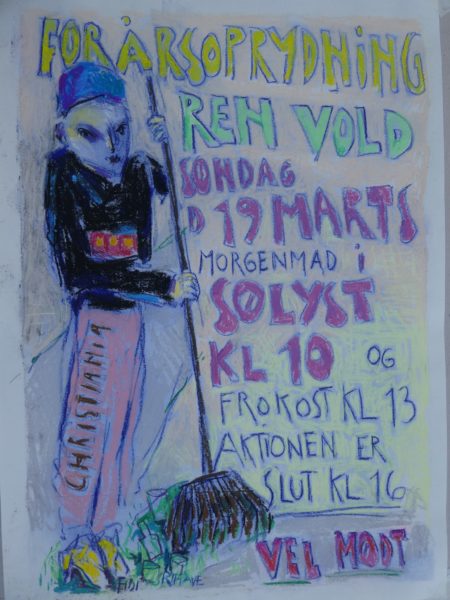 FORÅRSOPRYDNING
REN VOLD
SØNDAG
D 19 MARTS
MORGENMAD i
SØLYST
KL 10 OG
FROKOST KL 13
AKTIONEN ER
SLUT KL 16
VEL MØDT
CHRISTIANIA